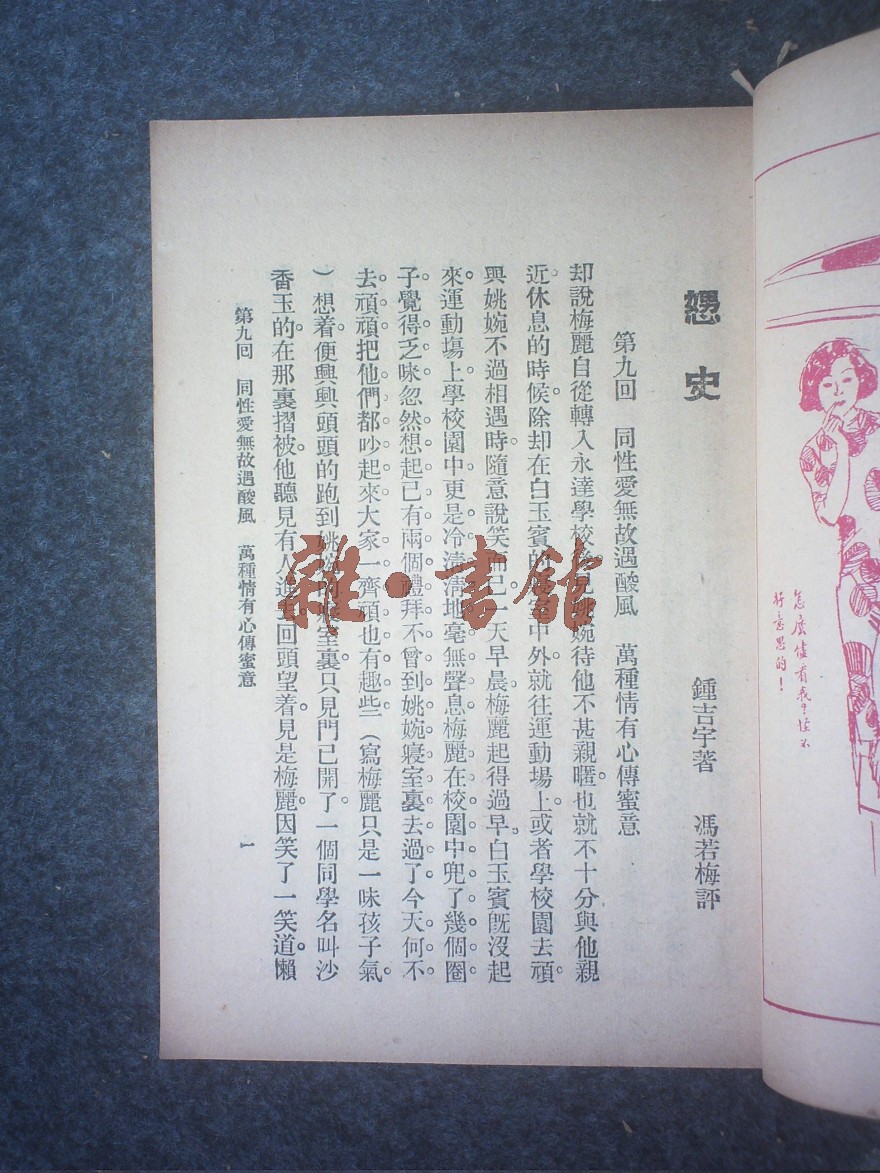 怎麼儘看我?怪不
好意思的!
史
鍾吉宇著 馮若梅評
第九回 同性愛無故遇酸風 萬種情有心傳蜜意
却說梅麗自從轉入永達學校見姚婉待他不甚親暱。也就不十分與他親
近。休息的時候。除却在白玉賓的寢室中外。就往運動場上。或者學校園去頑。
與姚婉不過相遇時。隨意說笑而已。一天早晨。梅麗起得過早。白玉賓旣沒起
來。運動塲上學校園中更是冷清清地毫無聲息梅麗在校園中兜了幾個圈
子覺得乏味忽然想起已有兩個禮拜不曾到姚婉寢室裏去過了今天何不
去頑頑把他們都吵起來大家一齊頑也有趣些（寫梅麗只是一味孩子氣。
）想着。便興興頭頭的跑到姚婉的寢室裏。只見門已開了。一個同學名叫沙
香玉的。在那裏摺被。他聽見有人進去。回頭望着。見是梅麗。因笑了一笑道。懶
第九回 同性愛無故遇酸風 萬種情有心傳蜜意
一
雜·書館